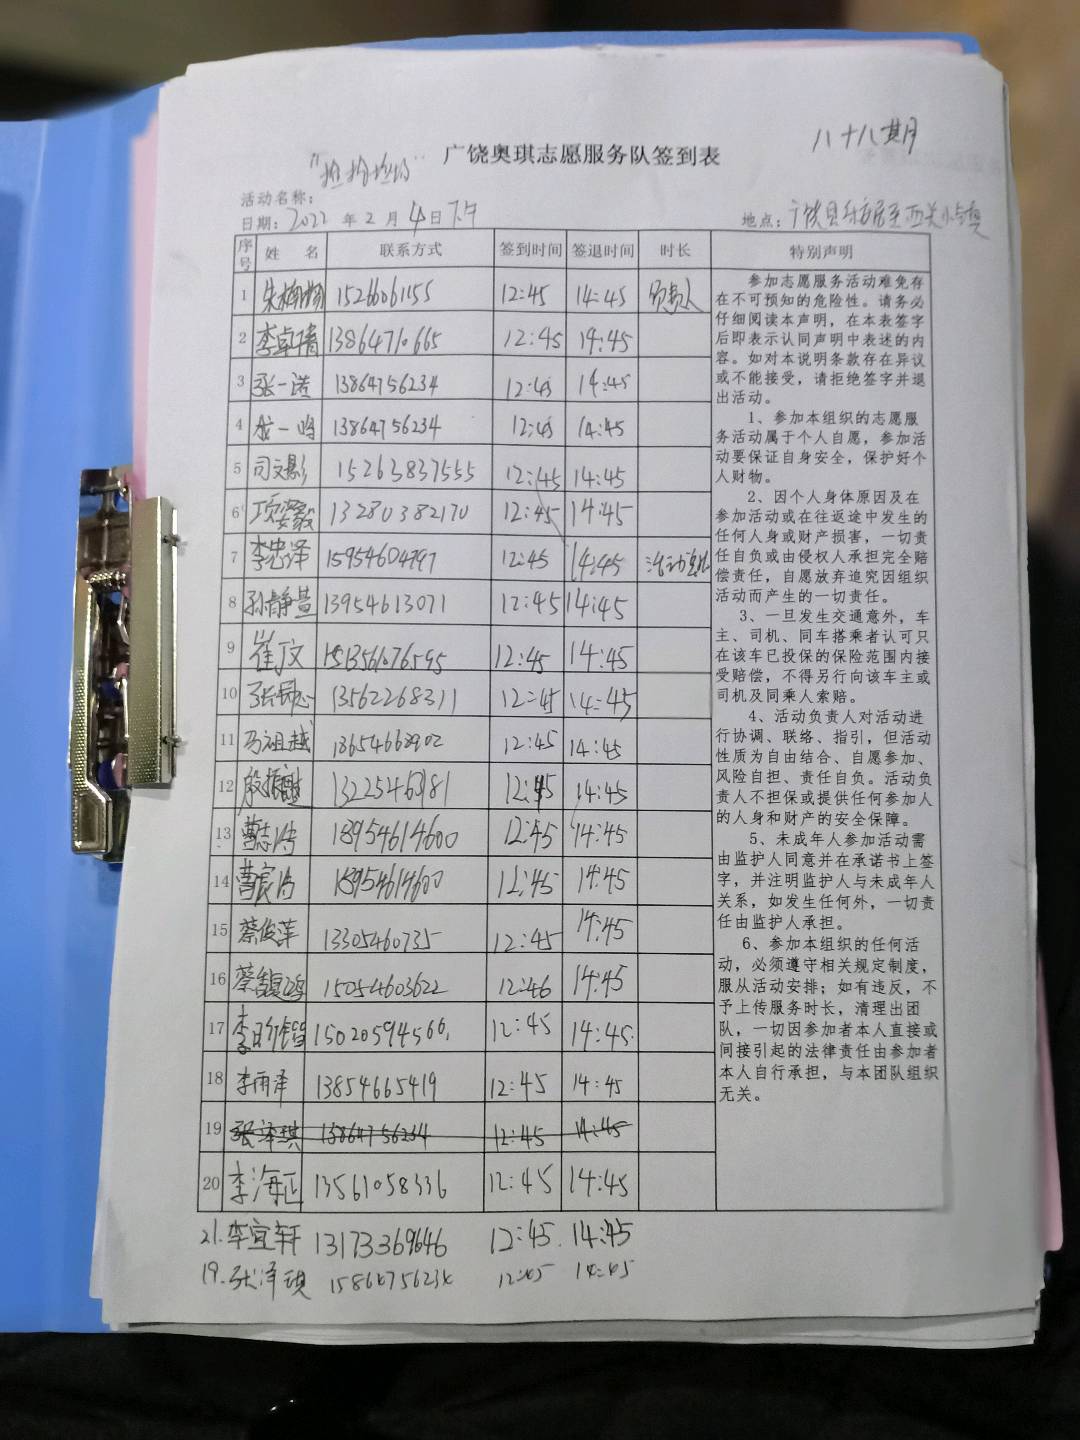 八十八期
广饶奥琪志愿服务队签到表
活动名称：
日期：2022 年 2 月 4 日 下午
地点：广饶县
序号 姓 名 联系方式 签到时间 签退时间 时长 特别声明
1 15266061155 12:45 14:45 负责人
2 李卓倩 13864710665 12:45 14:45
3 张一诺 13864756234 12:45 14:45
4 一鸣 13864756234 12:45 14:45
5 司文影 15263837555 12:45 14:45
6 项姿毅 13280382170 12:45 14:45
7 李忠泽 15954604797 12:45 14:45
8 孙静萱 13954613071 12:45 14:45
9 崔文 12:45 14:45
10 13562268311 12:45 14:45
11 马祖越 12:45 14:45
12 殷 12:45 14:45
13 曹志 18954614600 12:45 14:45
14 曹宸 18954614600 12:45 14:45
15 蔡俊萍 13305460735 12:45 14:45
16 蔡 15054603622 12:46 14:45
17 李 15020594566 12:45 14:45
18 李雨泽 13854665419 12:45 14:45
19 张泽琪 15864756234 12:45 14:45
20 李海正 13561058336 12:45 14:45
21.李宜轩 13173369646 12:45 14:45
19.张泽琪 15864756234 12:45 14:45
参加志愿服务活动难免存
在不可预知的危险性。请务必
仔细阅读本声明，在本表签字
后即表示认同声明中表述的内
容。如对本说明条款存在异议
或不能接受，请拒绝签字并退
出活动。
1、参加本组织的志愿服
务活动属于个人自愿，参加活
动要保证自身安全，保护好个
人财物。
2、因个人身体原因及在
参加活动或在往返途中发生的
任何人身或财产损害，一切责
任自负或由侵权人承担完全赔
偿责任，自愿放弃追究因组织
活动而产生的一切责任。
3、一旦发生交通意外，车
主、司机、同车搭乘者认可只
在该车已投保的保险范围内接
受赔偿，不得另行向该车主或
司机及同乘人索赔。
4、活动负责人对活动进
行协调、联络、指引，但活动
性质为自由结合、自愿参加、
风险自担、责任自负。活动负
责人不担保或提供任何参加人
的人身和财产的安全保障。
5、未成年人参加活动需
由监护人同意并在承诺书上签
字，并注明监护人与未成年人
关系，如发生任何外，一切责
任由监护人承担。
6、参加本组织的任何活
动，必须遵守相关规定制度，
服从活动安排；如有违反，不
予上传服务时长，清理出团
队，一切因参加者本人直接或
间接引起的法律责任由参加者
本人自行承担，与本团队组织
无关。